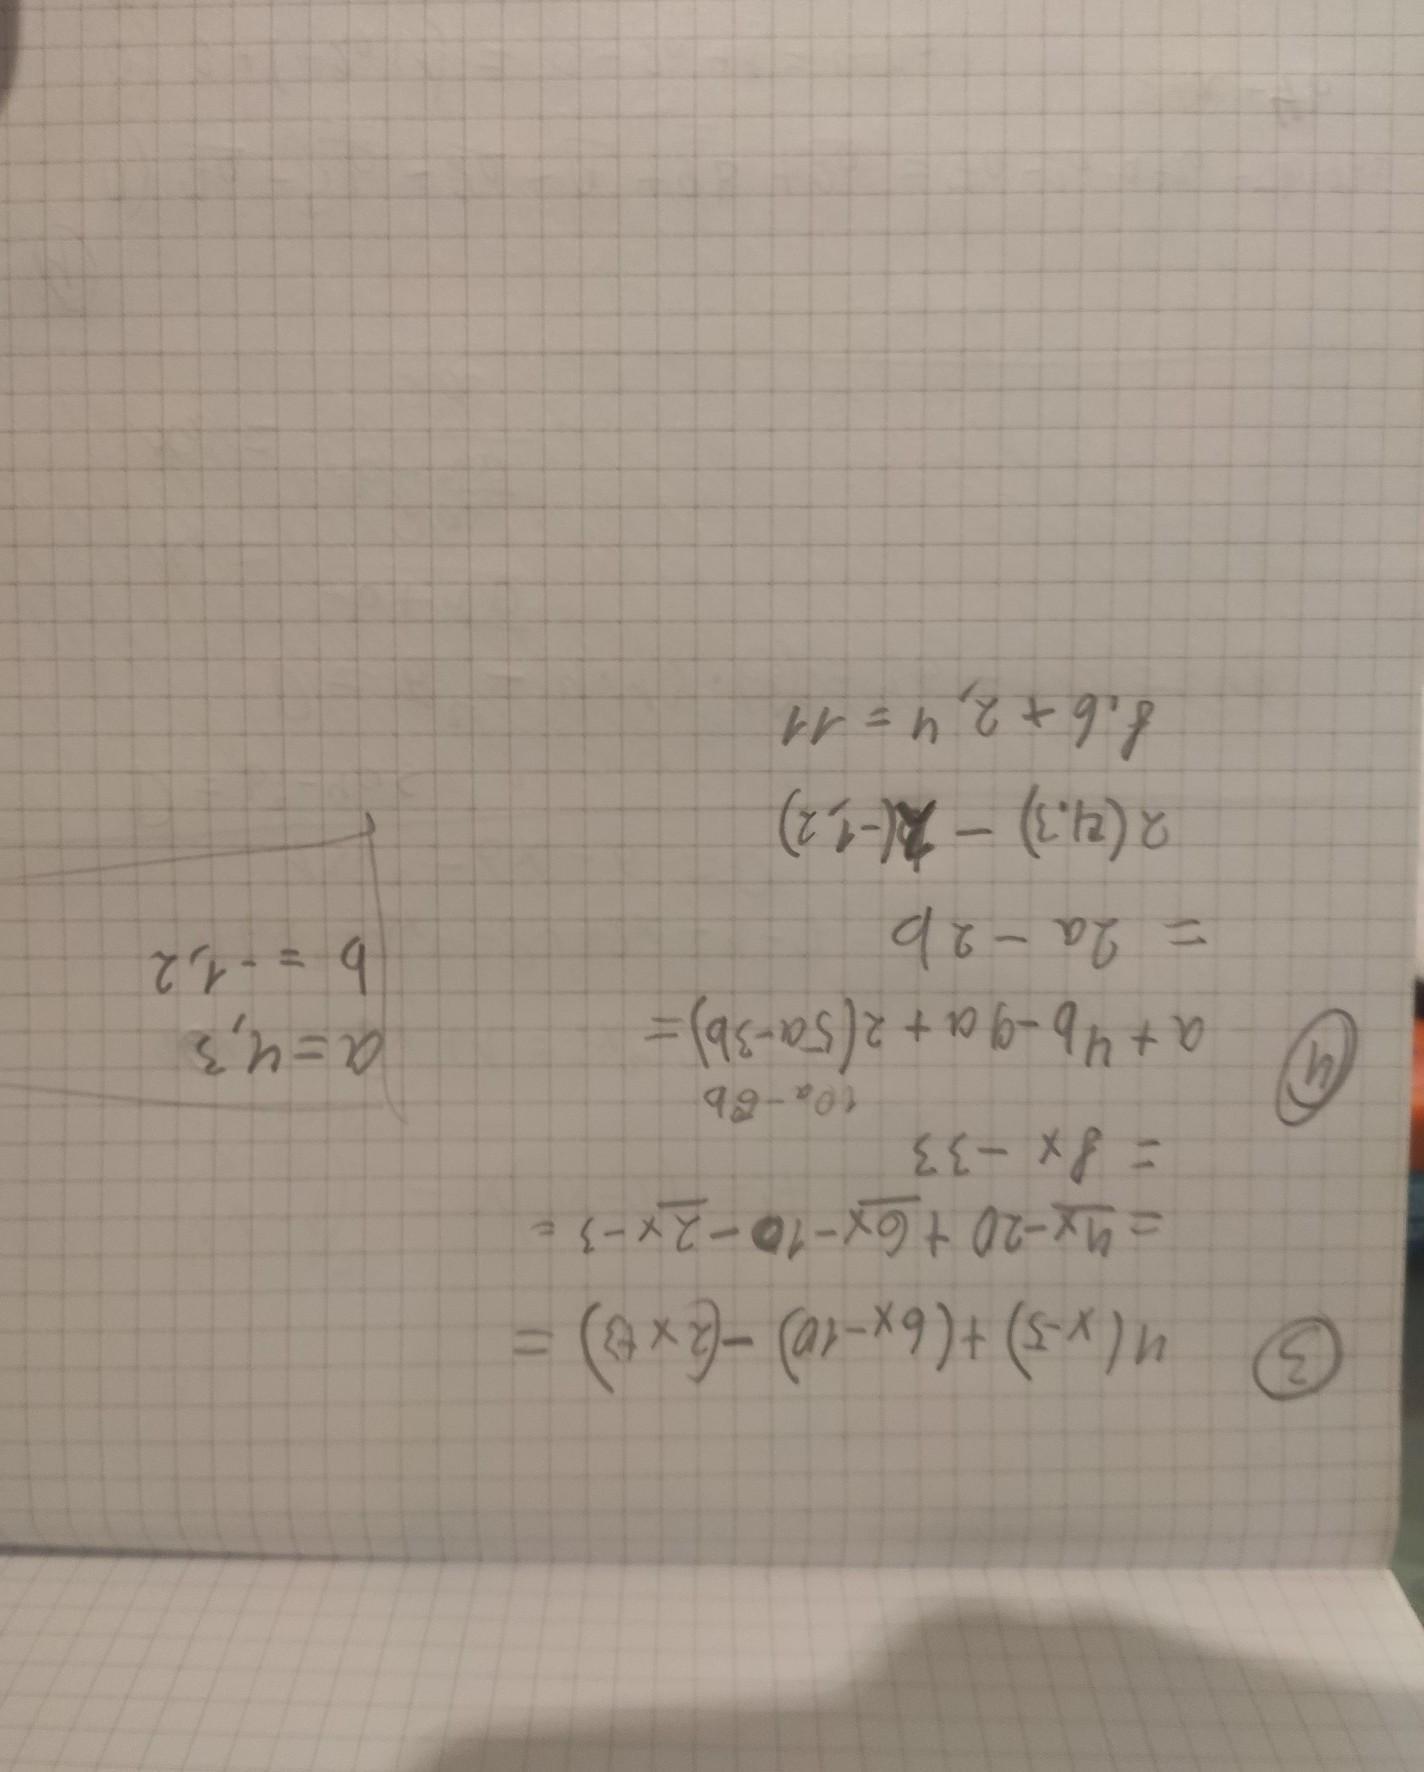 ③ 4(x-5)+(6x-10)-(2x+3)=
=4x-20+6x-10-2x-3=
=8x-33
10a-6b
④ a+4b-9a+2(5a-3b)=
a=4,3
=2a-2b
b=-1,2
2(4,3)-2(-1,2)
8,6+2,4=11